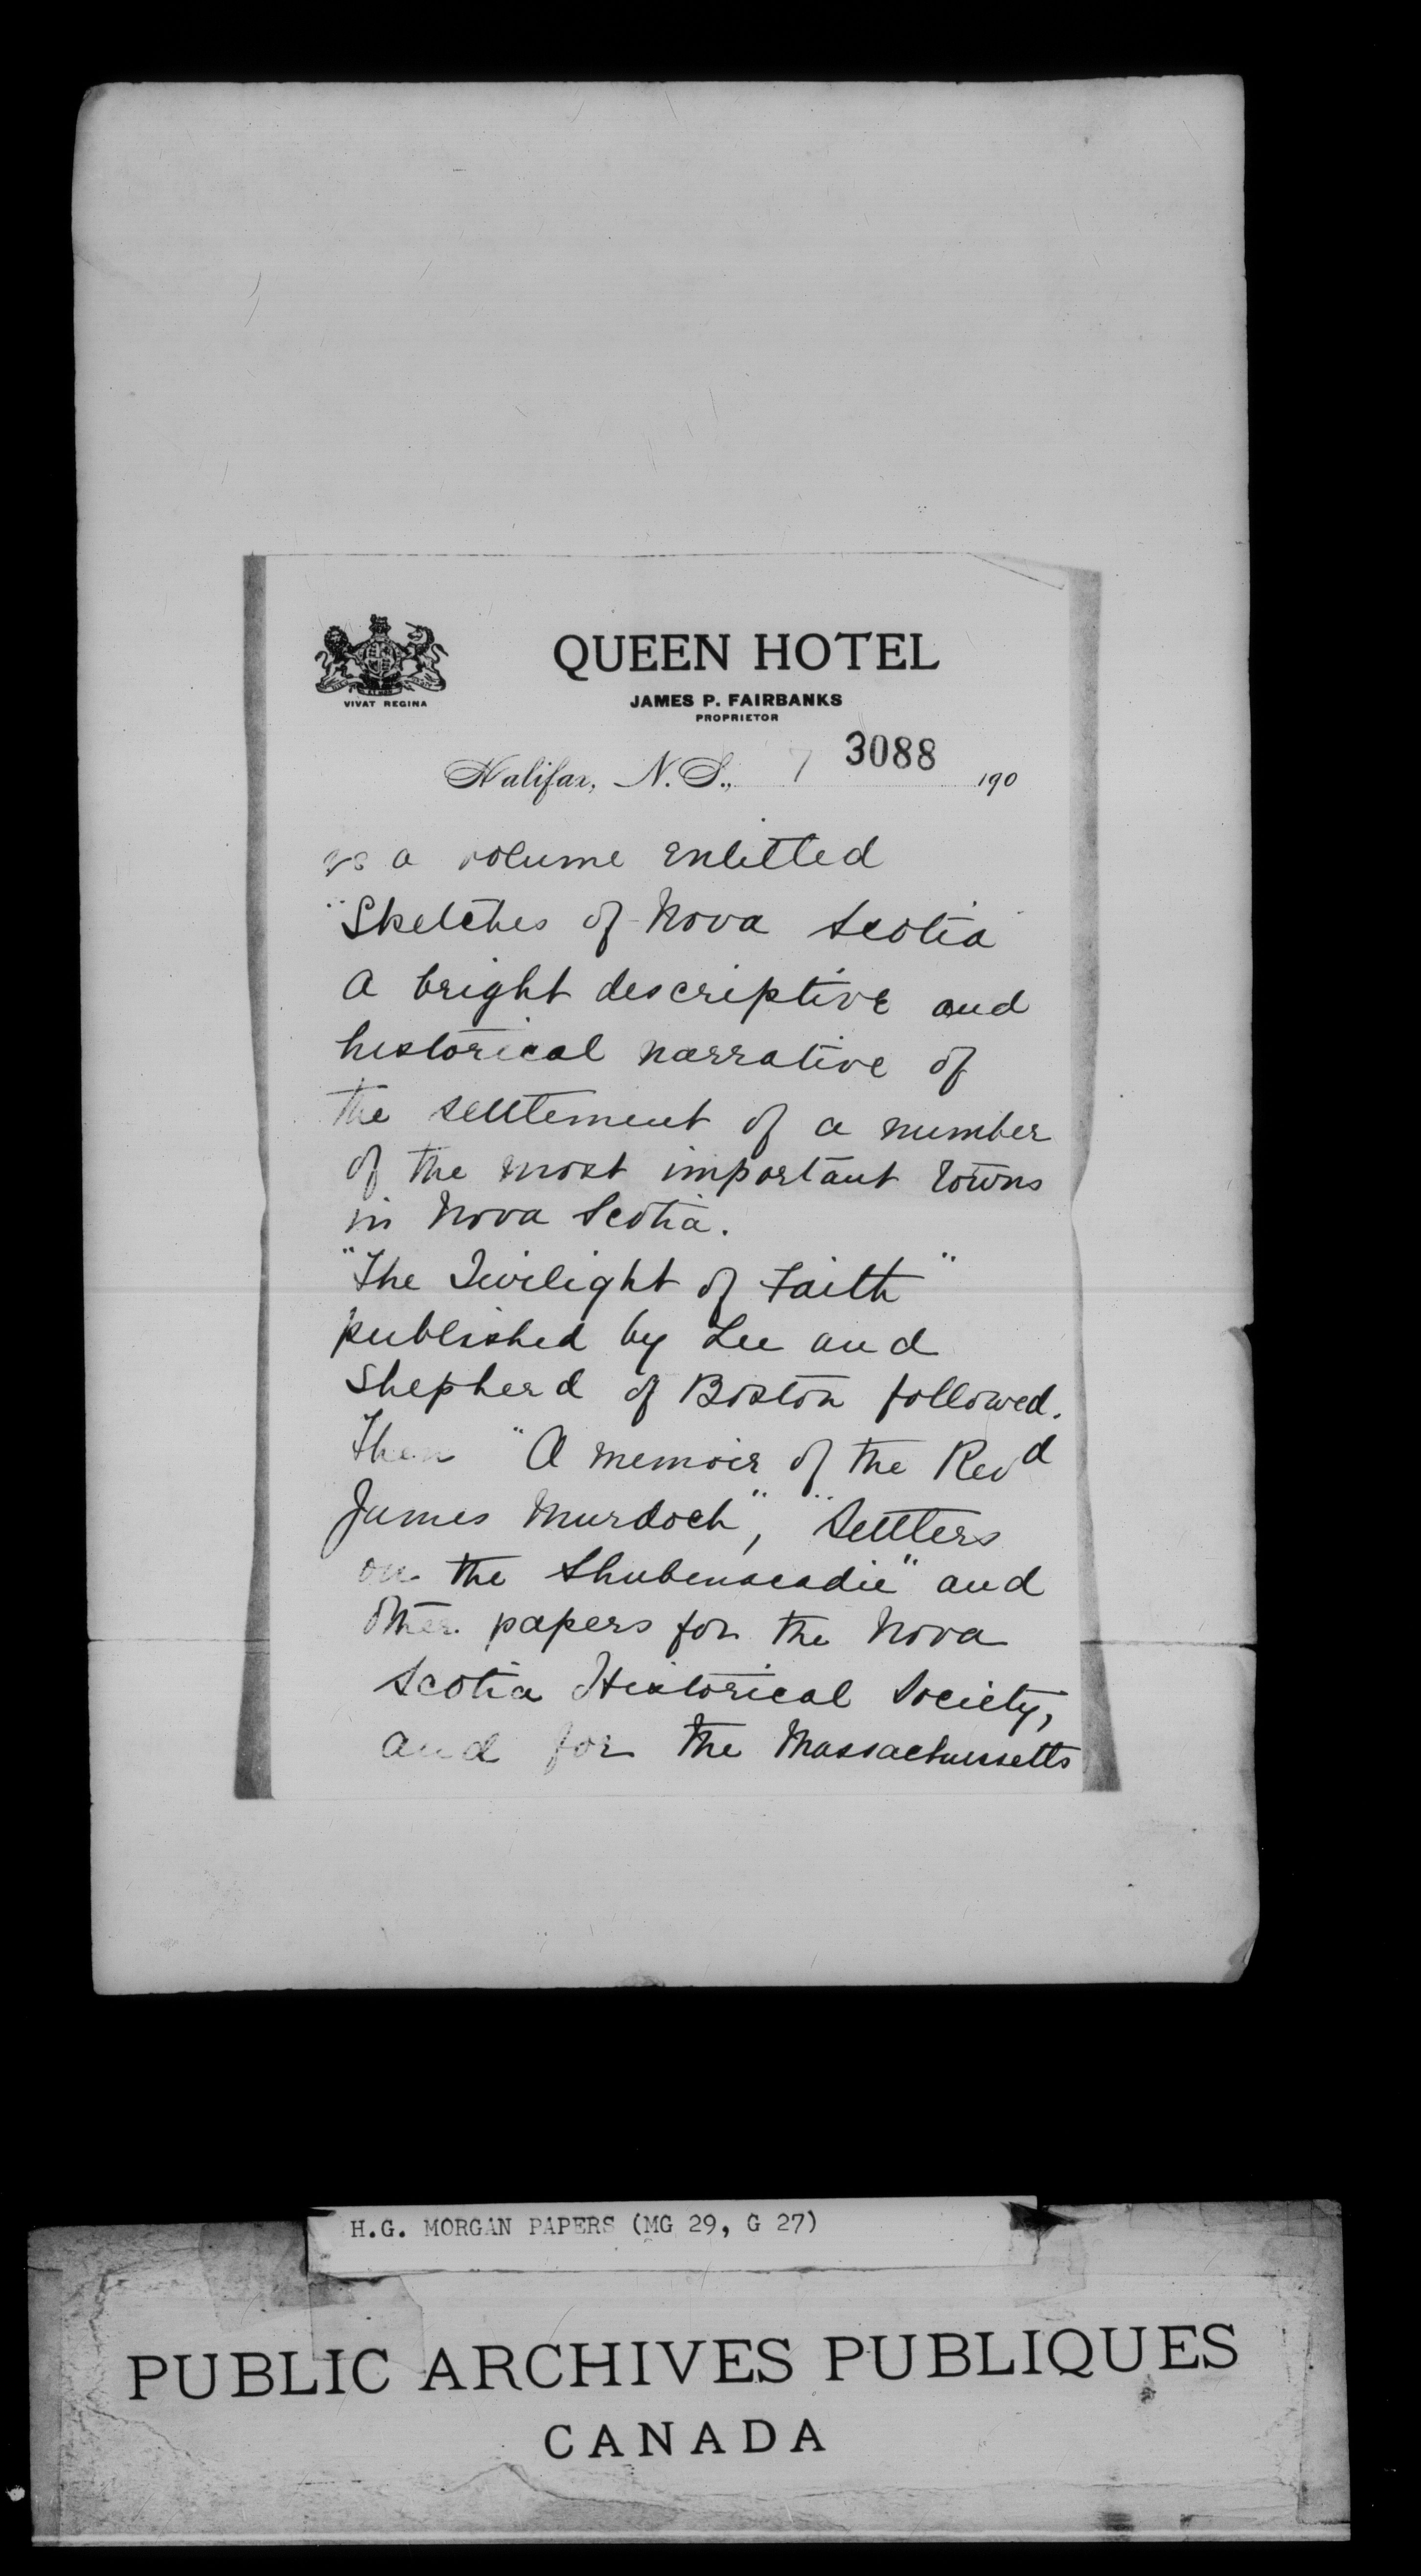 QUEEN HOTEL
JAMES P. FAIRBANKS
PROPRIETOR
VIVAT REGINA
3088
Halifax, N.S., 7 190
as a volume entitled
"Sketches of Nova Scotia"
a bright descriptive and
historical narrative of
the settlement of a number
of the most important towns
in Nova Scotia.
"The Twilight of Faith"
published by Lee and
Shepherd of Boston followed.
Then "A memoir of the Revd
James Murdoch", "Settlers
on the Shubenacadie" and
other papers for the Nova
Scotia Historical Society,
and for the Massachussetts
H.G. MORGAN PAPERS (MG 29, G 27)
PUBLIC ARCHIVES PUBLIQUES
CANADA